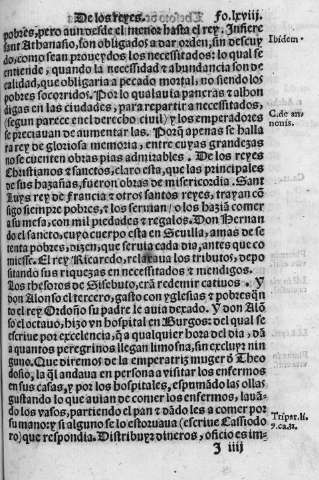 De los reyes. Fo. lxviij.
pobres, pero aun desde el menor hasta el rey. Infiere
sant Athanasio, son obligados a dar orden, sin descuy
do, como sean proueydos los necessitados: lo qual se
entiende, quando la necessidad & abundancia son de
calidad, que obligaria a pecado mortal, no siendo los
pobres socorridos. Por lo qual auia paneras & alhon
digas en las ciudades, para repartir a necessitados,
(segun parece en el derecho ciuil) y los emperadores
se preciauan de aumentar las. Porq̃ apenas se halla
ra rey de gloriosa memoria, entre cuyas grandezas
no se cuenten obras pias admirables. De los reyes
Christianos & sanctos, claro esta, que las principales
de sus hazañas, fueron obras de misericordia. Sant
Luys rey de Francia & otros santos reyes, trayan cõ
sigo siempre pobres, & los seruian / o los haziã comer
a su mesa, con mil piedades & regalos. Don Hernan
do el sancto, cuyo cuerpo esta en Seuilla, a mas de se
tenta pobres, dizen, que seruia cada dia, antes que co
miesse. El rey Ricaredo, relaxaua los tributos, depo
sitando sus riquezas en necessitados & mendigos.
Los thesoros de Sisebuto, erã redemir catiuos. Y
don Alonso el tercero, gasto con yglesias & pobres quã
to el rey Ordoño su padre le auia dexado. Y don Alõ
so el octauo, hizo vn hospital en Burgos: del qual se
escriue por excelencia, q̃ a qualquier hora del dia, dã
a quantos peregrinos llegan limosna, sin excluyr nin
guno. Que diremos de la emperatriz muger d Theo
dosio, la q̃l andaua en persona a visitar los enfermos
en sus casas, y por los hospitales, espumãdo las ollas
gustando lo que auian de comer los enfermos, lauã
do los vasos, partiendo el pan & dãdo les a comer por
su mano: y si alguno se lo estoruaua (escriue Cassiodo
ro) que respondia. Distribuyr dineros, oficio es im-
Ibidem.
C. de an
nonis.
Tripar. li.
9. ca. 31.
J iiij